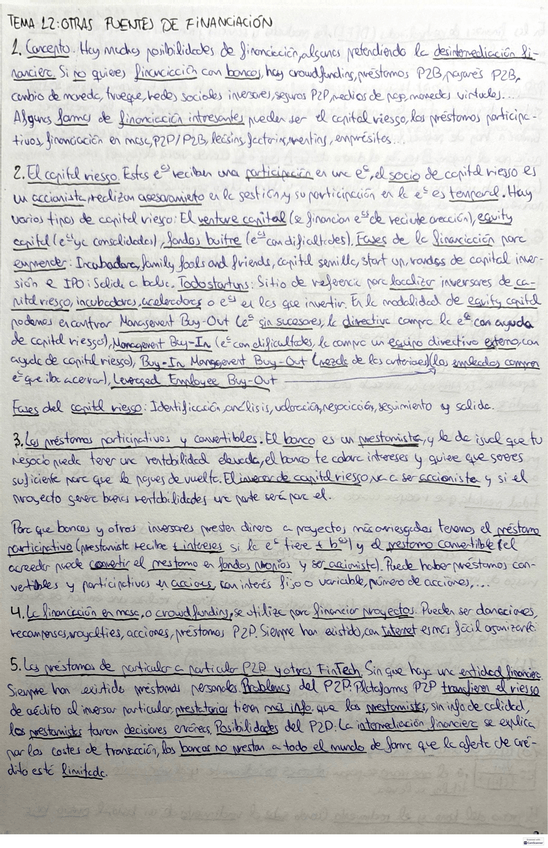 TEMA 12: OTRAS FUENTES DE FINANCIACIÓN
1. Concepto. Hay muchas posibilidades de financiación, algunas pretendiendo la desintermediación fi-
nanciera. Si no quieres financiación con bancos, hay crowdfunding, préstamos P2B, pagarés P2B,
cambio de moneda, trueque, redes sociales inversores, seguros P2P, medios de pago, monedas virtuales...
Algunas formas de financiación intresantes pueden ser el capital riesgo, los préstamos participa-
tivos, financiación en masa, P2P/P2B, leasing, factoring, renting, empréstitos...
2. El capital riesgo. Estas eª reciben una participación en una eª, el socio de capital riesgo es
un accionista, realizan asesoramiento en la gestión y su participación en la eª es temporal. Hay
varios tipos de capital riesgo: El venture capital (se financian eªs de reciente creación), equity
capital (eªs ya consolidadas), fondos buitre (eªs con dificultades). Fases de la financiación para
emprender: Incubadora, family fools and friends, capital semilla, start up, rondas de capital inver-
sión e IPO: Salida a bolsa. Todostartups: Sitio de referencia para localizar inversores de ca-
pital riesgo, incubadoras, aceleradoras o eªs en las que invertir. En la modalidad de equity capital
podemos encontrar Management Buy-Out (eª sin sucesores, la directiva compra la eª con ayuda
de capital riesgo), Management Buy-In (eª con dificultades, la compra un equipo directivo externo, con
ayuda de capital riesgo), Buy-In Management Buy-Out (mezcla de las anteriores) (los empleados compran
eª que iba a cerrar), Leveraged Employee Buy-Out
Fases del capital riesgo: Identificación, análisis, valoración, negociación, seguimiento y salida.
3. Los préstamos participativos y convertibles. El banco es un prestamista, y le da igual que tu
negocio pueda tener una rentabilidad elevada, el banco te cobra intereses y quiere que ganes
suficiente para que le pagues de vuelta. El inversor de capital riesgo va a ser accionista y si el
proyecto genera buenas rentabilidades una parte será para el.
Para que bancos y otros inversores presten dinero a proyectos más arriesgados tenemos el préstamo
participativo (prestamista recibe + intereses si la eª tiene + bº) y el prestamo convertible (el
acreedor puede convertir el prestamo en fondos propios y ser accionista). Puede haber préstamos con-
vertibles y participativos en acciones, con interés fijo o variable, número de acciones,...
4. La financiación en masa, o crowdfunding, se utiliza para financiar proyectos. Pueden ser donaciones,
recompensas, royalties, acciones, préstamos P2P. Siempre han existido, con Internet es más fácil organizarlo.
5. Los préstamos de particular a particular P2P y otras FinTech. Sin que haya una entidad financiera.
Siempre han existido préstamos personales. Problemas del P2P: Plataformas P2P transfieren el riesgo
de crédito al inversor particular, prestatarios tienen más info. que los prestamistas, sin info de calidad,
los prestamistas toman decisiones erróneas. Posibilidades del P2P: La intermediación financiera se explica
por los costes de transacción, los bancos no prestan a todo el mundo de forma que la oferta de cré-
dito está limitada.